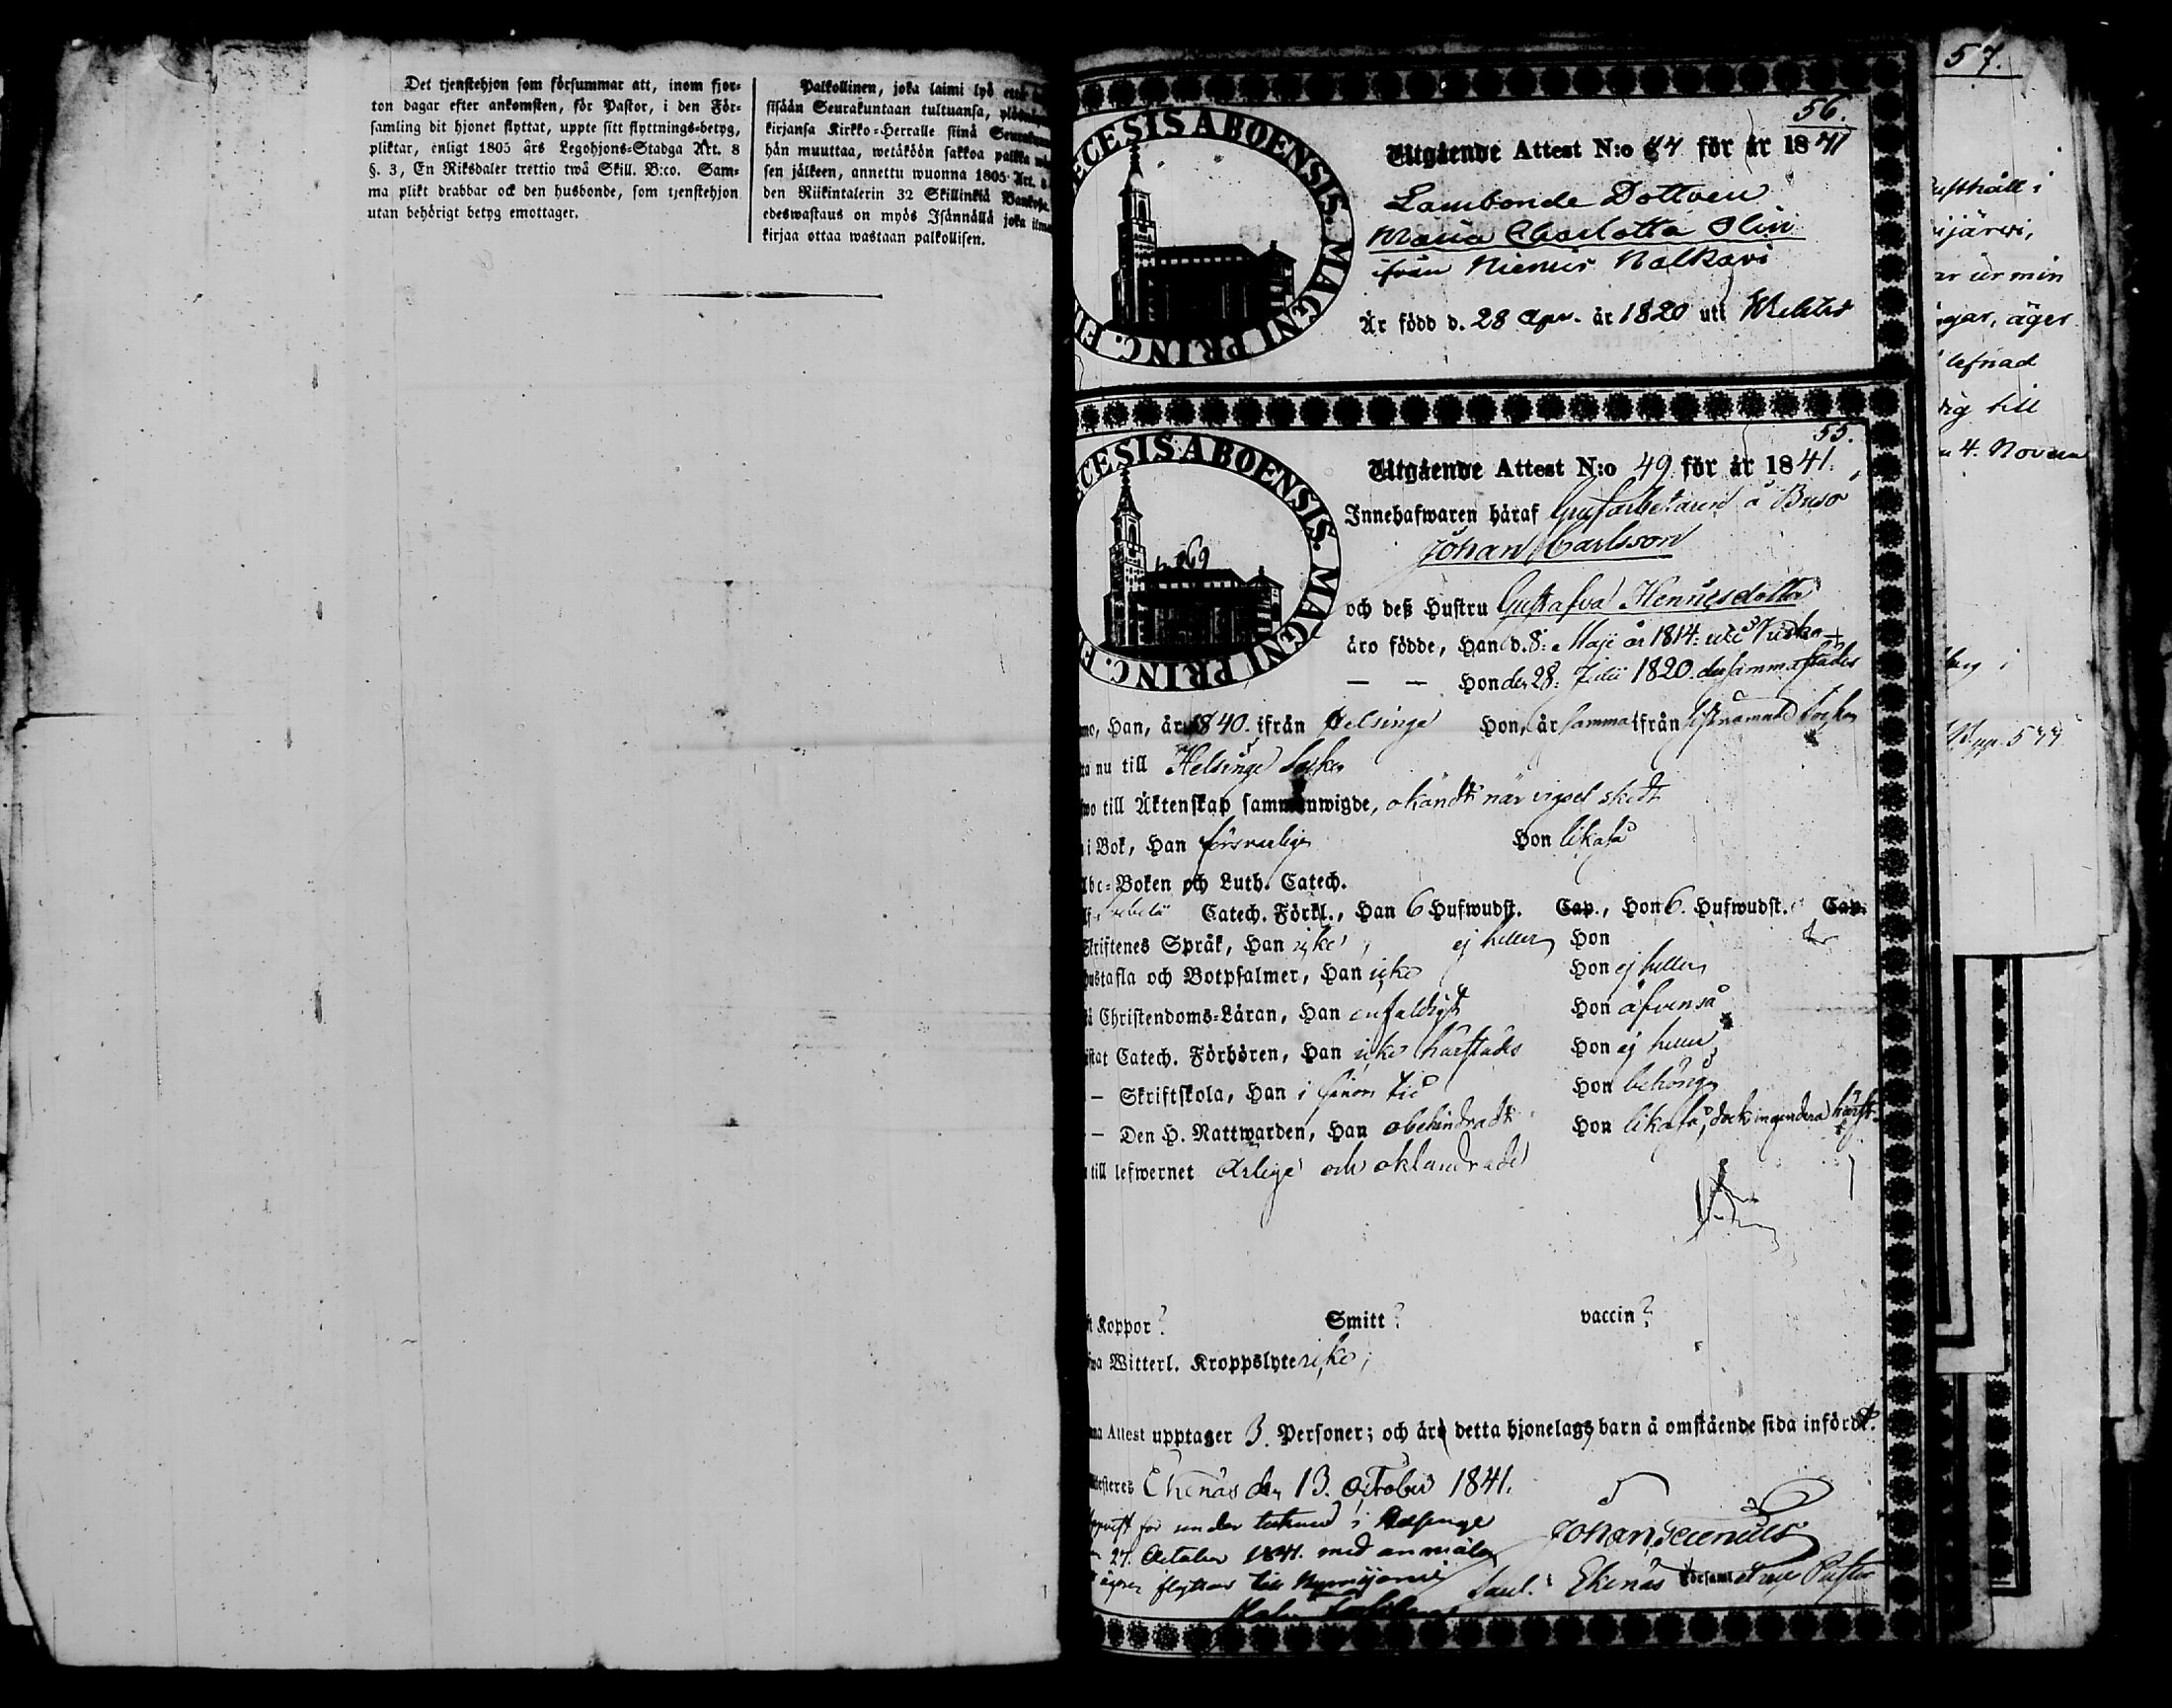 Det tjenstehjon som försummar att, inom fjor-
ton dagar efter ankomsten, för Pastor, i den För-
samling dit hjonet flyttat, uppte sitt flyttnings-betyg,
pliktar, enligt 1805 års Legohjons-Stadga Art. 8
§. 3, En Riksdaler trettio twå Skill. B:co. Sam-
ma plikt drabbar ock den husbonde, som tjenstehjon
utan behörigt betyg emottager.
Palkollinen, joka laimi lyö
sisään Seurakuntaan tultuansa,
kirjansa Kirkko-Herralle siinä
hän muuttaa, wetäköön sakkoa palkka
sen jälkeen, annettu wuonna 1805 Art. 8
den Riikintalerin 32 Skillinkiä Bankossa.
edeswastaus on myös Isännällä joka ilma
kirjaa ottaa wastaan palkollisen.
56.
ECESIS ABOENSIS. MAGNI PRINC. FI
Utgående Attest N:o 84 för år 1841
Lambonde Dottren
Maria Charlotta Olin
ifrån Niemis Nalkari
Är född d. 28 Apr. år 1820 uti
55.
CESIS ABOENSIS. MAGNI PRINC. F
Utgående Attest N:o 49 för år 1841.
Innehafwaren häraf Grufarbetaren å Brusö
Johan Carlsson
och deß Hustru Gustafva Henricsdotter
äro födde, Han d. 8: Maji år 1814: uti
— — Hon den 28: Julii 1820. dersammastädes
mo, Han, år 1840. ifrån Helsinge Hon, år samma ifrån sistnämnde Socken
ta nu till Helsinge Socken
wo till Äktenskap sammanwigde, okändt när vigsel skedt
i Bok, Han försvarligen Hon likaså
Abc-Boken och Luth. Catech.
Catech. Förkl., Han 6 Hufwudst. Cap., Hon 6. Hufwudst. Cap.
Skriftenes Språk, Han icke, ej heller Hon
Hustafla och Botpsalmer, Han icke Hon ej heller
å Christendoms-Läran, Han enfaldigt Hon äfvenså
istat Catech. Förhören, Han icke härstädes Hon ej heller
— Skriftskola, Han i sinom tid Hon behörigen
— Den H. Nattwarden, Han obehindradt Hon likaså, dock ingendera härst.
till lefwernet Ärlige och oklandrade
Koppor? Smitt? vaccin?
wa Witterl. Kroppslyte icke;
na Attest upptager 3. Personer; och äro detta hjonelags barn å omstående sida införde.
testeres Ekenäs den 13. October 1841.
för under tecknad i Helsinge
27. October 1841. med anmälan
flyttar till Nurmijärvi
Johan
i Ekenäs Församl.
57.
ijärvi,
ar ur min
gar, äger
lefnad
dig till
4. Novem